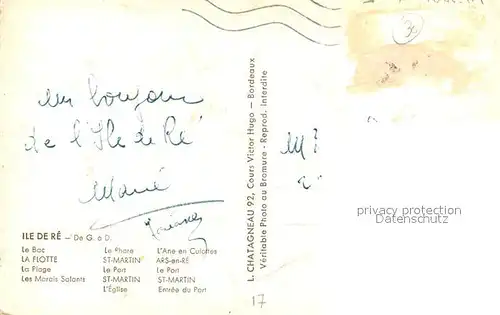 un bonjour
de l'Ile de Ré
Marie
ILE DE RÉ — De G. à D.
Le Bac Le Phare L'Ane en Culottes
LA FLOTTE ST-MARTIN ARS-en-RÉ
La Plage Le Port Le Port
Les Marais Salants ST-MARTIN ST-MARTIN
L'Église Entrée du Port
L. CHATAGNEAU 92, Cours Victor Hugo — Bordeaux
Véritable Photo au Bromure - Reprod. Interdite
30
M
17
copyright protected
ansichtskarten-center.de